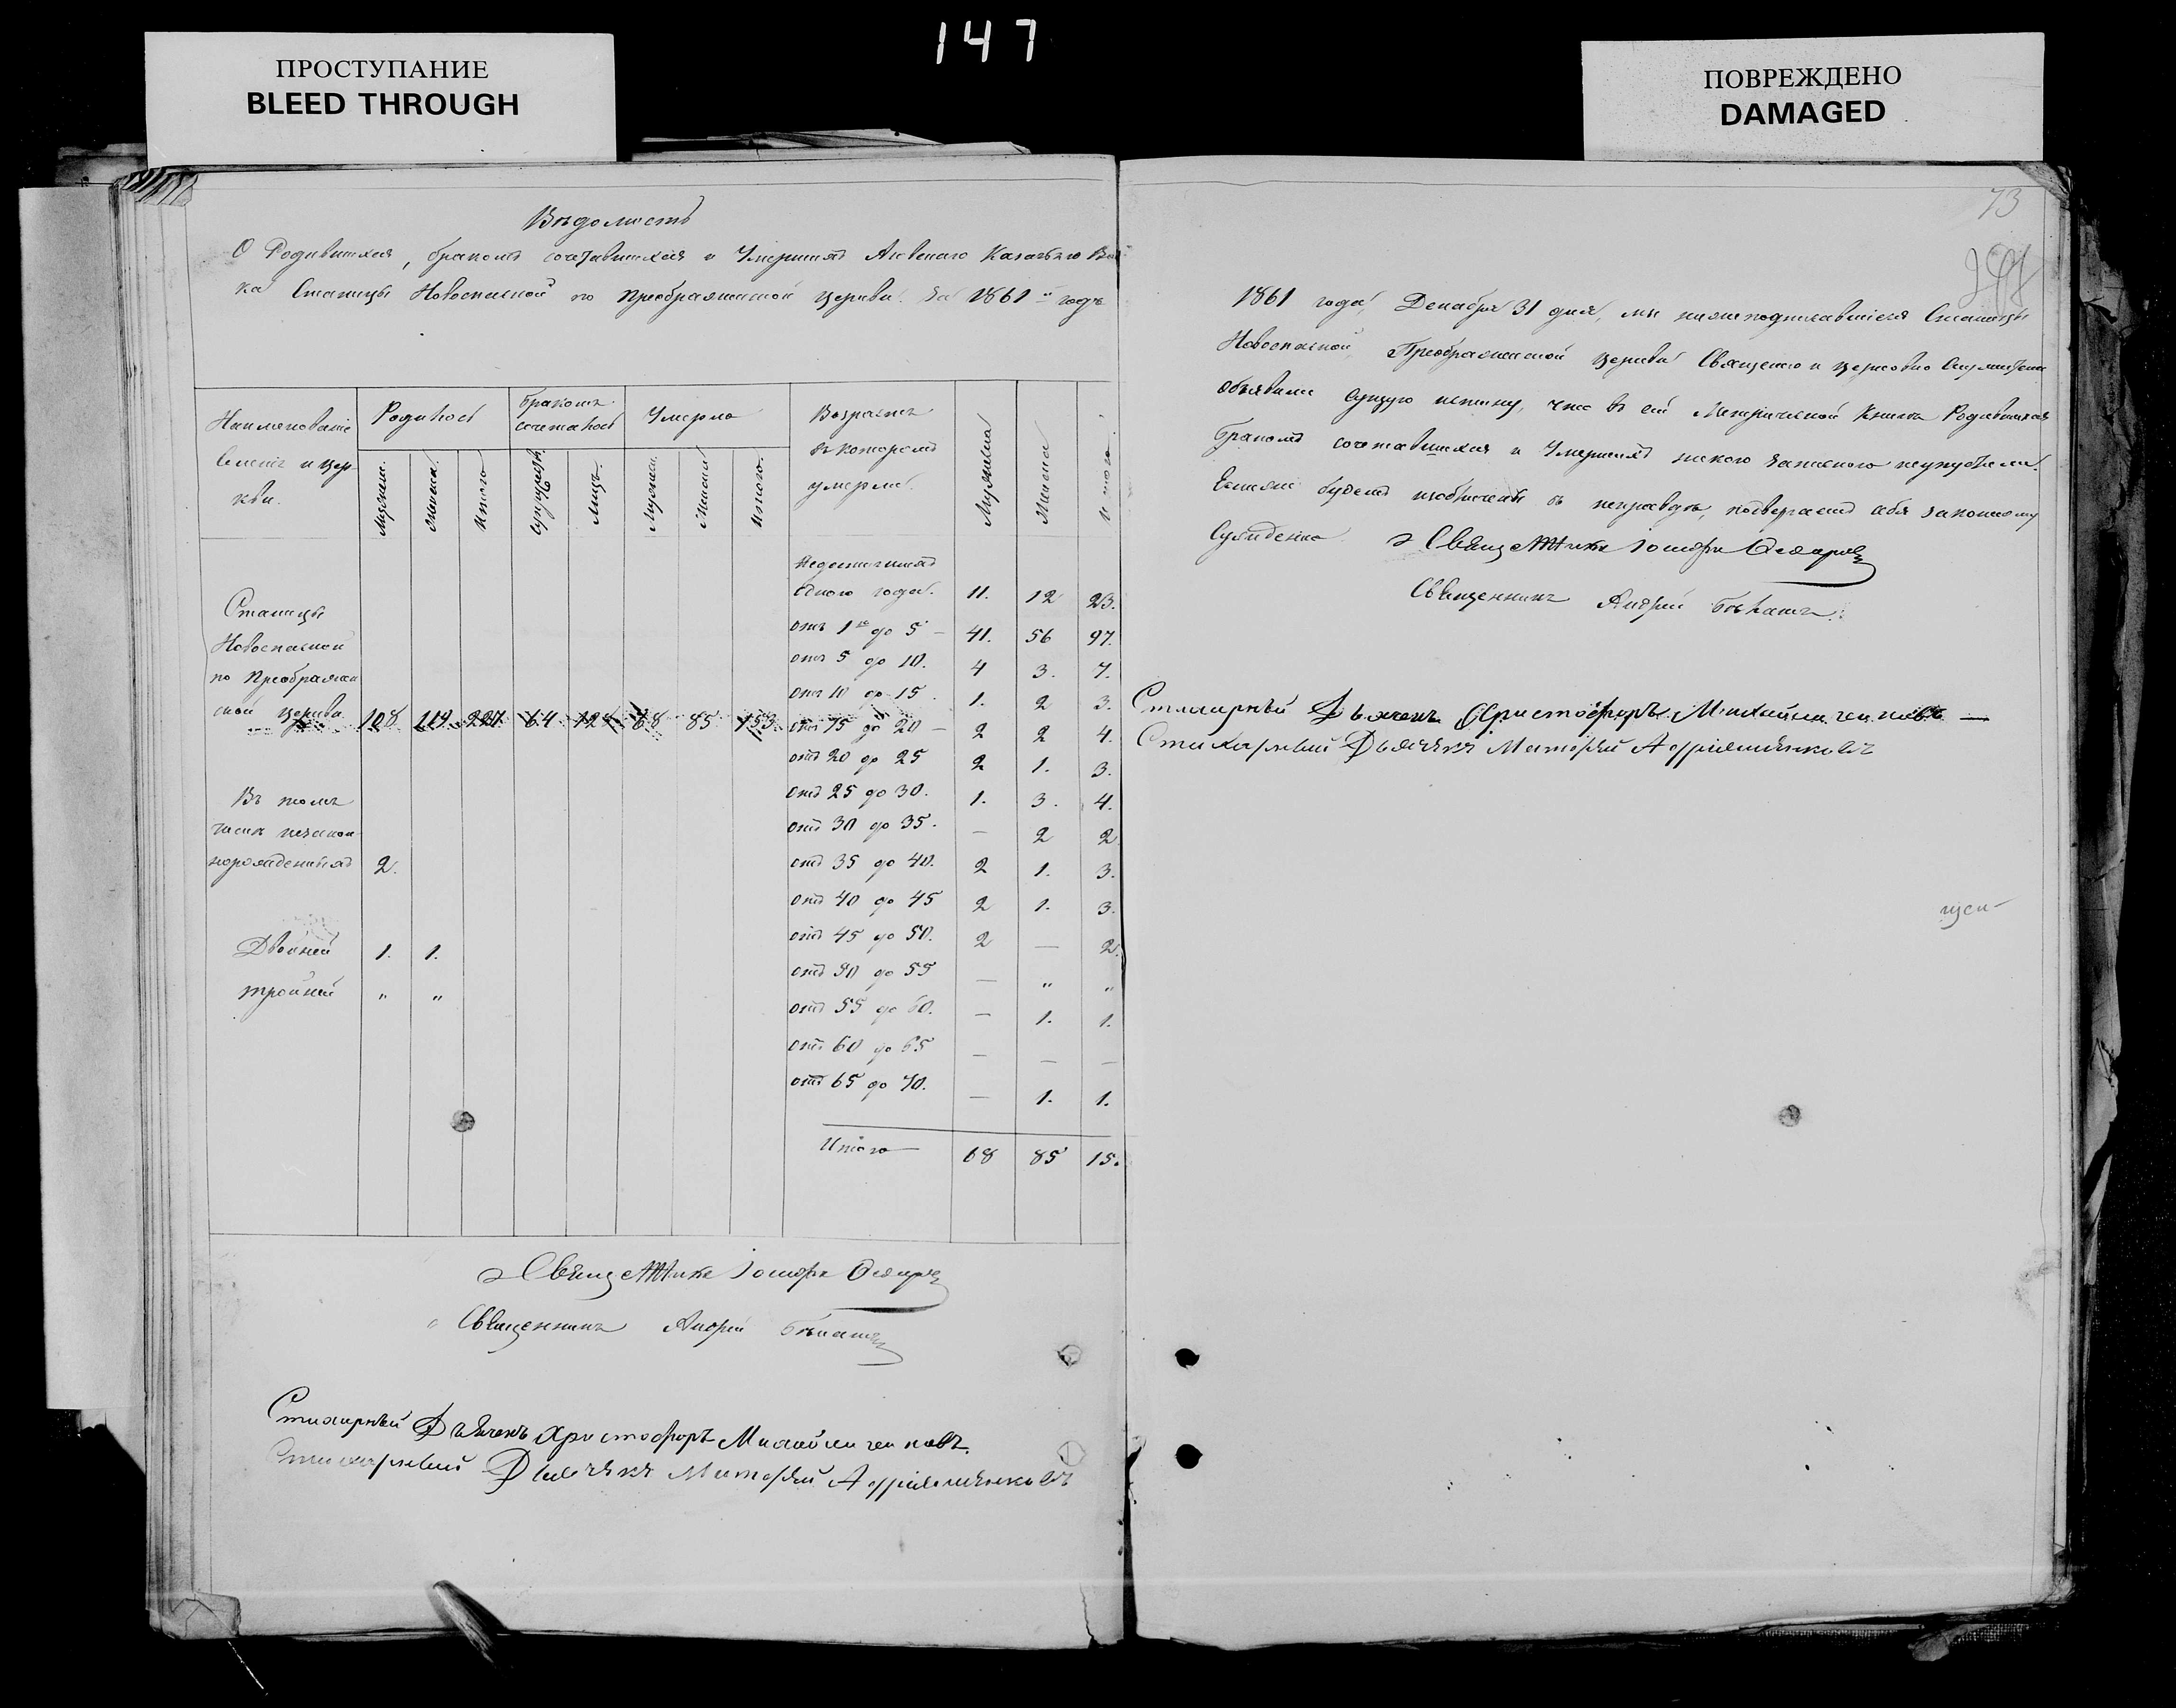 147
ПРОСТУПАНИЕ
BLEED THROUGH
ПОВРЕЖДЕНО
DAMAGED
Вѣдомость
О Родившихся, бракомъ сочетавшихся и Умершихъ Азовскаго Казачьяго Вой-
ка Станицы Новоспасской по Преображенской церкви. За 1861й годъ
Наименованіе
селенія и цер-
кви.
Родилось
Бракомъ
сочеталось
Умерло
Возрастъ
въ которомъ
умерли
Мужеск.
Женска.
Итого
Супружествъ
Лицъ.
Мужеск.
Женска
Итого.
Мужеска
Женска
Итого
Станицы
Новоспасской
по Преображен
ской церкви 108 119 227 64 128 68 85 153.
Въ томъ
числѣ незакон-
норожденныхъ 2.
Двойней 1. 1.
тройней " "
Недостигшихъ
одного года. 11. 12 23.
отъ 1го до 5 — 41. 56 97.
отъ 5 до 10. 4 3. 7.
отъ 10 до 15. 1. 2 3.
отъ 15 до 20 — 2 2 4.
отъ 20 до 25 2 1. 3.
отъ 25 до 30. 1. 3. 4.
отъ 30 до 35. — 2 2
отъ 35 до 40. 2 1. 3.
отъ 40 до 45 2 1. 3.
отъ 45 до 50. 2 — 2.
отъ 50 до 55 — " "
отъ 55 до 60. — 1. 1.
отъ 60 до 65 — — —
отъ 65 до 70. — 1. 1.
Итого — 68 85 15.
Священникъ Іосифъ
Священникъ Андрей
Стихарный Дьячекъ Христофоръ
Стихарный Дьячекъ Матфѣй
73
1861 года, Декабря 31 дня, мы нижеподписавшіеся Станицы
Новоспасской, Преображенской церкви Священно и церковно служители
объявили сущую истину, что въ сей Метрической Книгѣ Родившихся
бракомъ сочетавшихся и Умершихъ никого записью неупустили.
Ежели будемъ изобличены въ неправдѣ, подвергаемъ себя законному
Сужденію
Священникъ Іосифъ
Священникъ Андрей
Стихарный Дьячекъ Христофоръ
Стихарный Дьячекъ Матфѣй